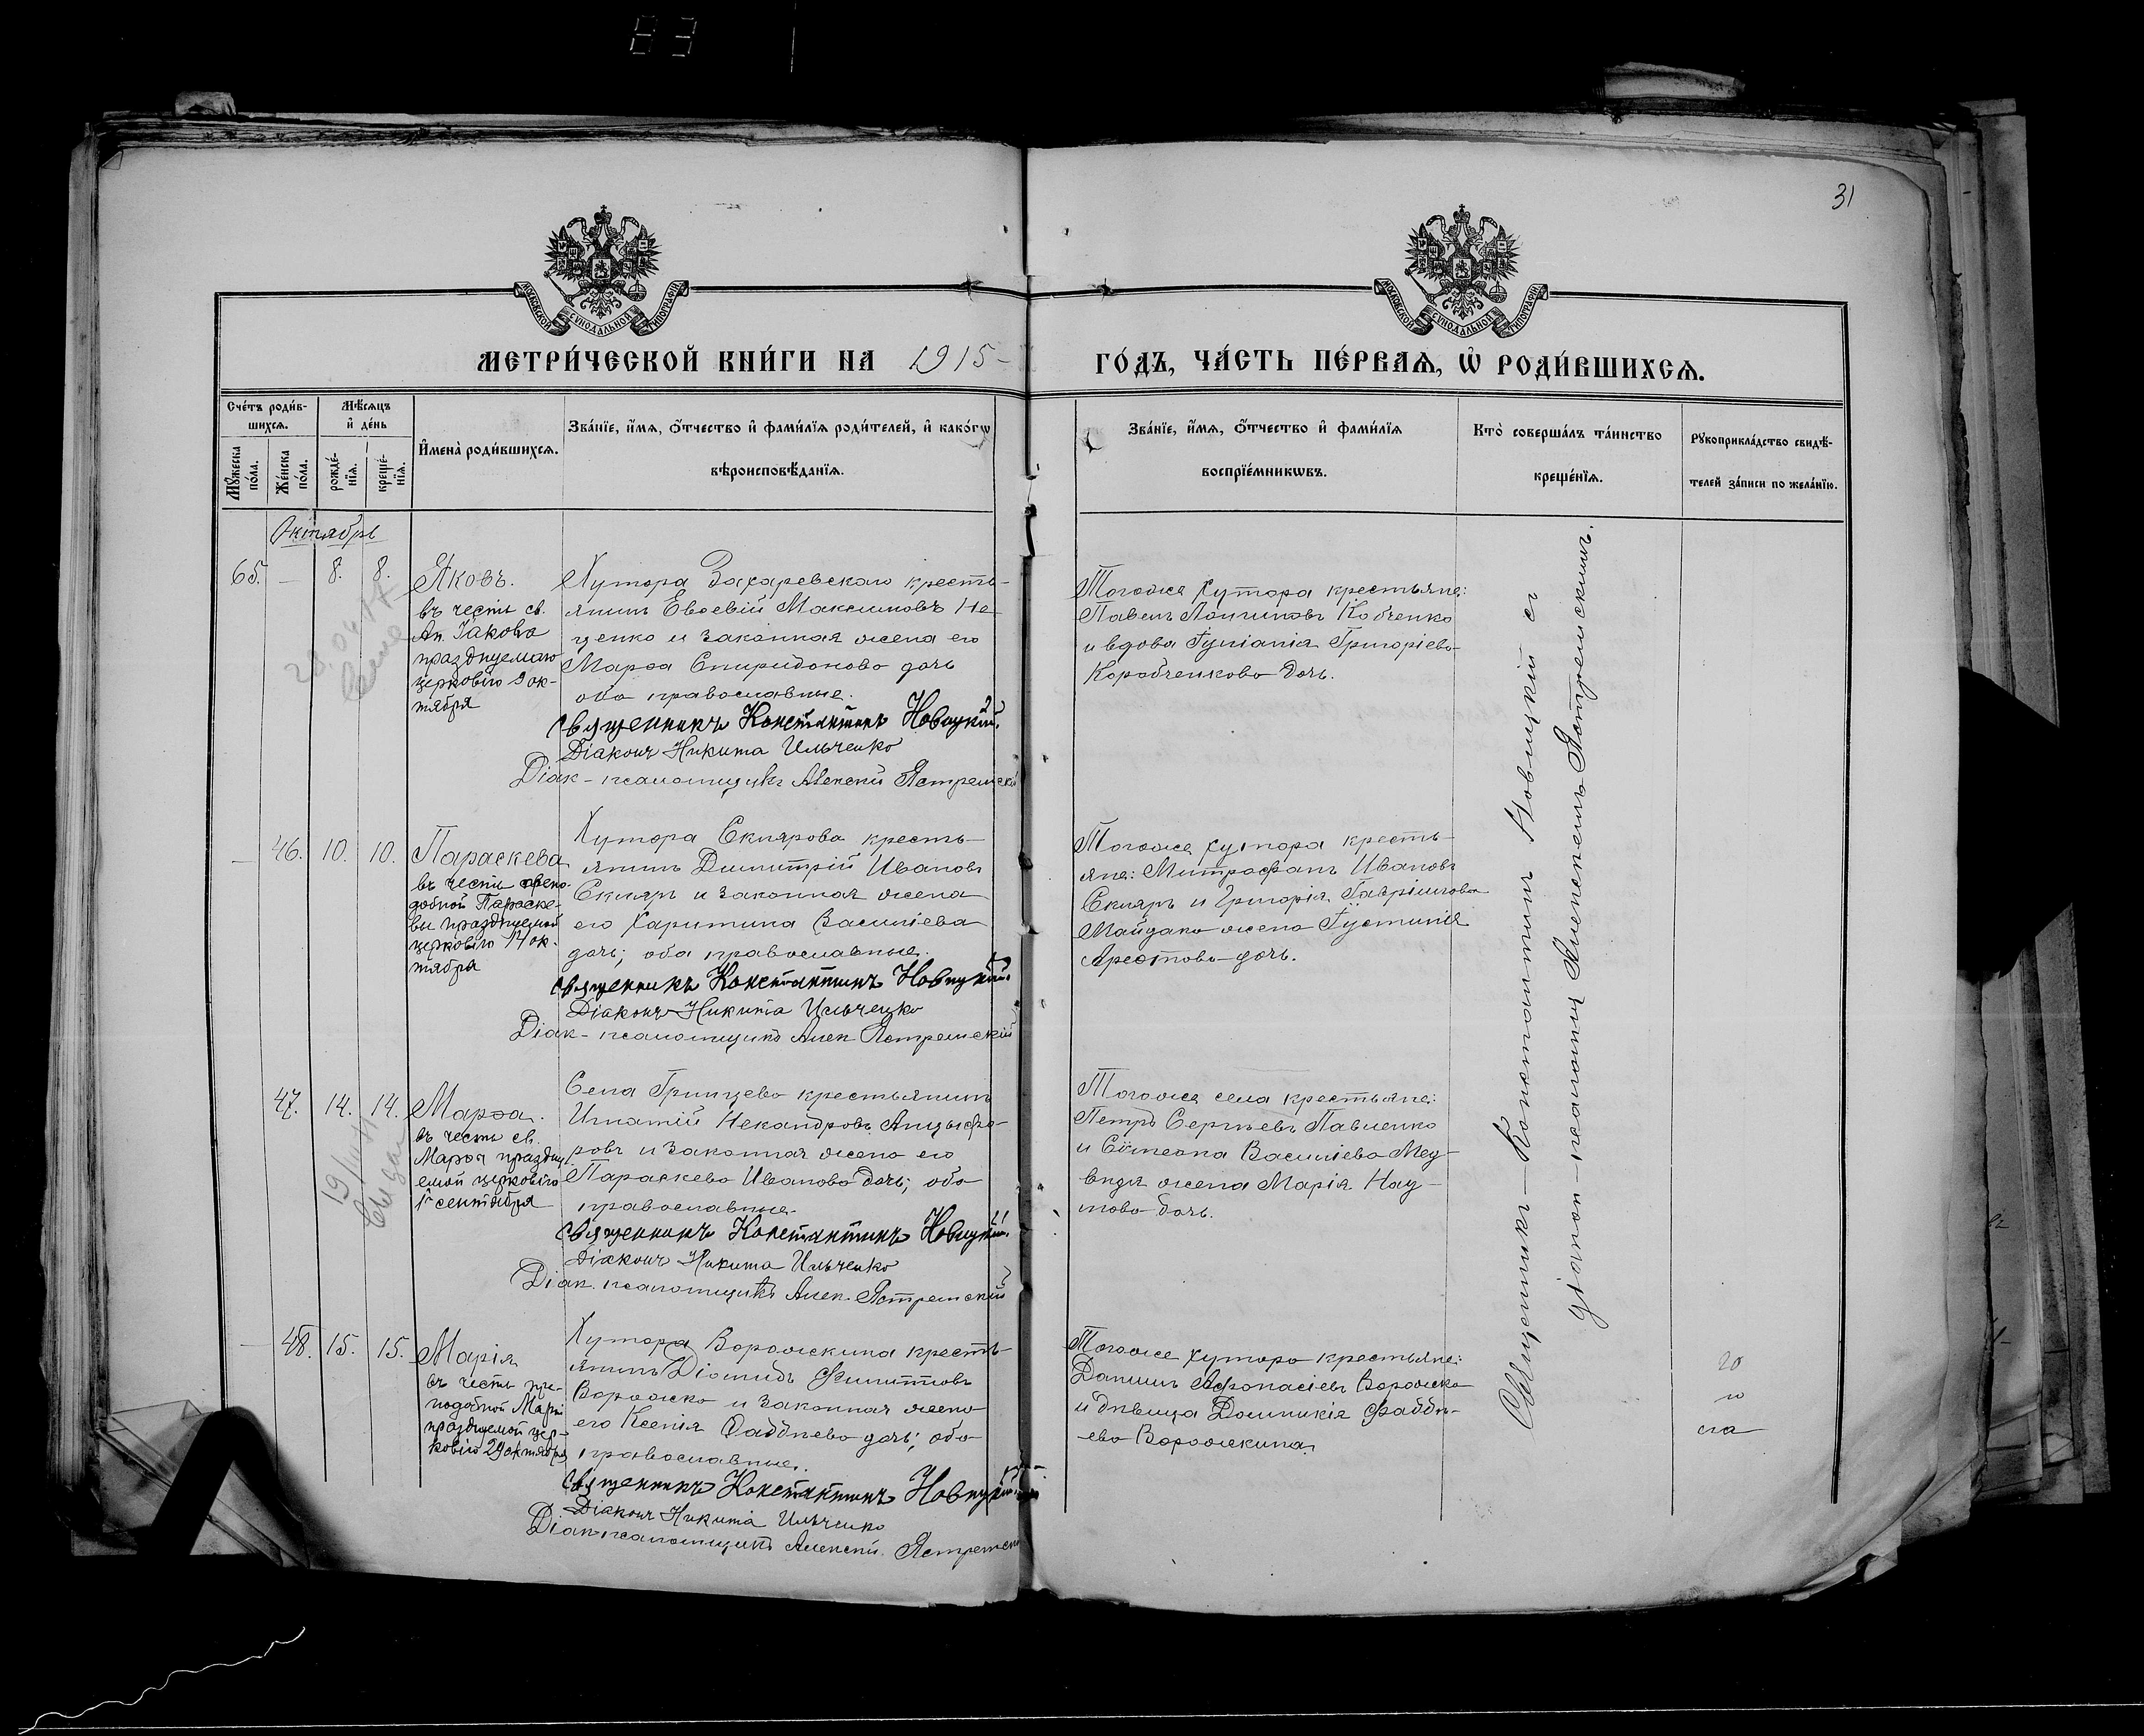 83
31
МОСКОВСКОЙ СѴНОДАЛЬНОЙ ТИПОГРАФІИ
МОСКОВСКОЙ СѴНОДАЛЬНОЙ ТИПОГРАФІИ
МЕТРИ́ЧЕСКОЙ КНИ́ГИ НА 1915 ГО́ДЪ, ЧА́СТЬ ПЕ́РВАѦ, Ѡ҆ РОДИ́ВШИХСѦ.
Сче́тъ роди́в-
шихсѧ.
Мꙋ́жеска по́ла.
Же́нска по́ла.
Мѣ́сѧцъ
и҆ де́нь
рожде́-
нїѧ.
креще́-
нїѧ.
И҆мена̀ роди́вшихсѧ.
Зва́нїе, и҆́мѧ, ѻ҆́тчество и҆ фами́лїѧ роди́телей, и҆ како́гѡ
вѣроисповѣ́данїѧ.
Зва́нїе, и҆́мѧ, ѻ҆́тчество и҆ фами́лїѧ
воспрїе́мникѡвъ.
Кто̀ соверша́лъ та́инство
креще́нїѧ.
Рꙋкоприкла́дство свидѣ́-
телей за́писи по жела́нїю.
Октябрь
65. — 8. 8.
Яковъ.
въ честь св.
Ап. Іакова
празднуемаго
церковію 9 ок-
тября
Хутора Захаревскаго кресть-
янинъ Евѳвій Максимовъ Не
ценко и законная жена его
Марѳа Спиридонова дочь
оба православные.
Священникъ Константинъ Новицкій.
Діаконъ Никита Ильченко
Діак-псаломщикъ Алексѣй Ястремскій
Тогоже хутора крестьяне:
Павелъ Кобченко
и вдова Григоріева
Коробченкова дочь.
— 46. 10. 10.
Параскева
въ честь препо-
добной Параске-
вы празднуемой
церковію 14 ок-
тября
Хутора Склярова кресть-
янинъ Димитрій Ивановъ
Скляръ и законная жена
его Харитина Василіева
дочь; оба православные.
Священникъ Константинъ Новицкій.
Діаконъ Никита Ильченко
Діак-псаломщикъ Алек Ястремскій
Тогоже хутора кресть-
яне: Митрофанъ Ивановъ
Скляръ и Григорія Гавріилова
Майдака жена Іустинія
Арестова дочь.
47. 14. 14.
Марѳа.
въ честь св.
Марѳы праздну
емой церковію
1 сентября
Села Гринцева крестьянинъ
Игнатій Никандровъ Анцыфе-
ровъ и законная жена его
Параскева Иванова дочь; оба
православные.
Священникъ Константинъ Новицкій.
Діаконъ Никита Ильченко
Діак. псаломщикъ Алек. Ястремскій
Тогоже села крестьяне:
Петръ Сергѣевъ Павленко
и Сѵмеона Василіева Мед-
вѣдя жена Марія Нау-
мова дочь.
— 48. 15. 15.
Марія
въ честь пре-
подобной Маріи
празднуемой цер-
ковію 29 октября
Хутора Ворожкина кресть-
янинъ Діомидъ Филипповъ
Ворожко и законная жена
его Ксенія Фаддѣева дочь; оба
православные.
Священникъ Константинъ Новицкій
Діаконъ Никита Ильченко
Діак-псаломщикъ Алексѣй Ястремскій
Тогоже хутора крестьяне:
Даниилъ Аѳанасіевъ Ворожко
и дѣвица Домникія Фаддѣ-
ева Ворожкина.
Священникъ Константинъ Новицкій съ
діакон-псаломщ Алексѣемъ Ястремскимъ.